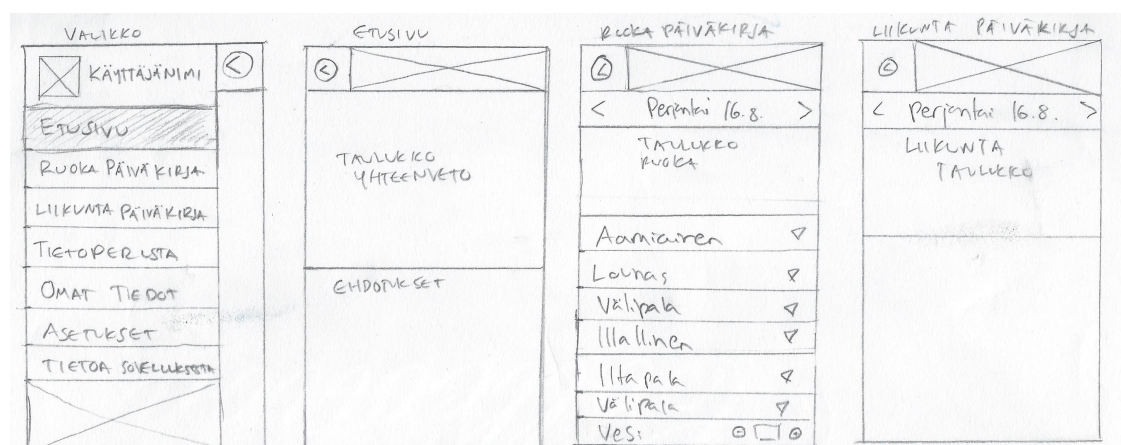 VALIKKO
KÄYTTÄJÄNIMI
<
ETUSIVU
RUOKA PÄIVÄKIRJA
LIIKUNTA PÄIVÄKIRJA
TIETOPERUSTA
OMAT TIEDOT
ASETUKSET
TIETOA SOVELLUKSESTA
ETUSIVU
<
TAULUKKO
YHTEENVETO
EHDOTUKSET
RUOKA PÄIVÄKIRJA
<
< Perjantai 16.8. >
TAULUKKO
RUOKA
Aamiainen
Lounas
Välipala
Illallinen
Iltapala
Välipala
Vesi
LIIKUNTA PÄIVÄKIRJA
<
< Perjantai 16.8. >
LIIKUNTA
TAULUKKO